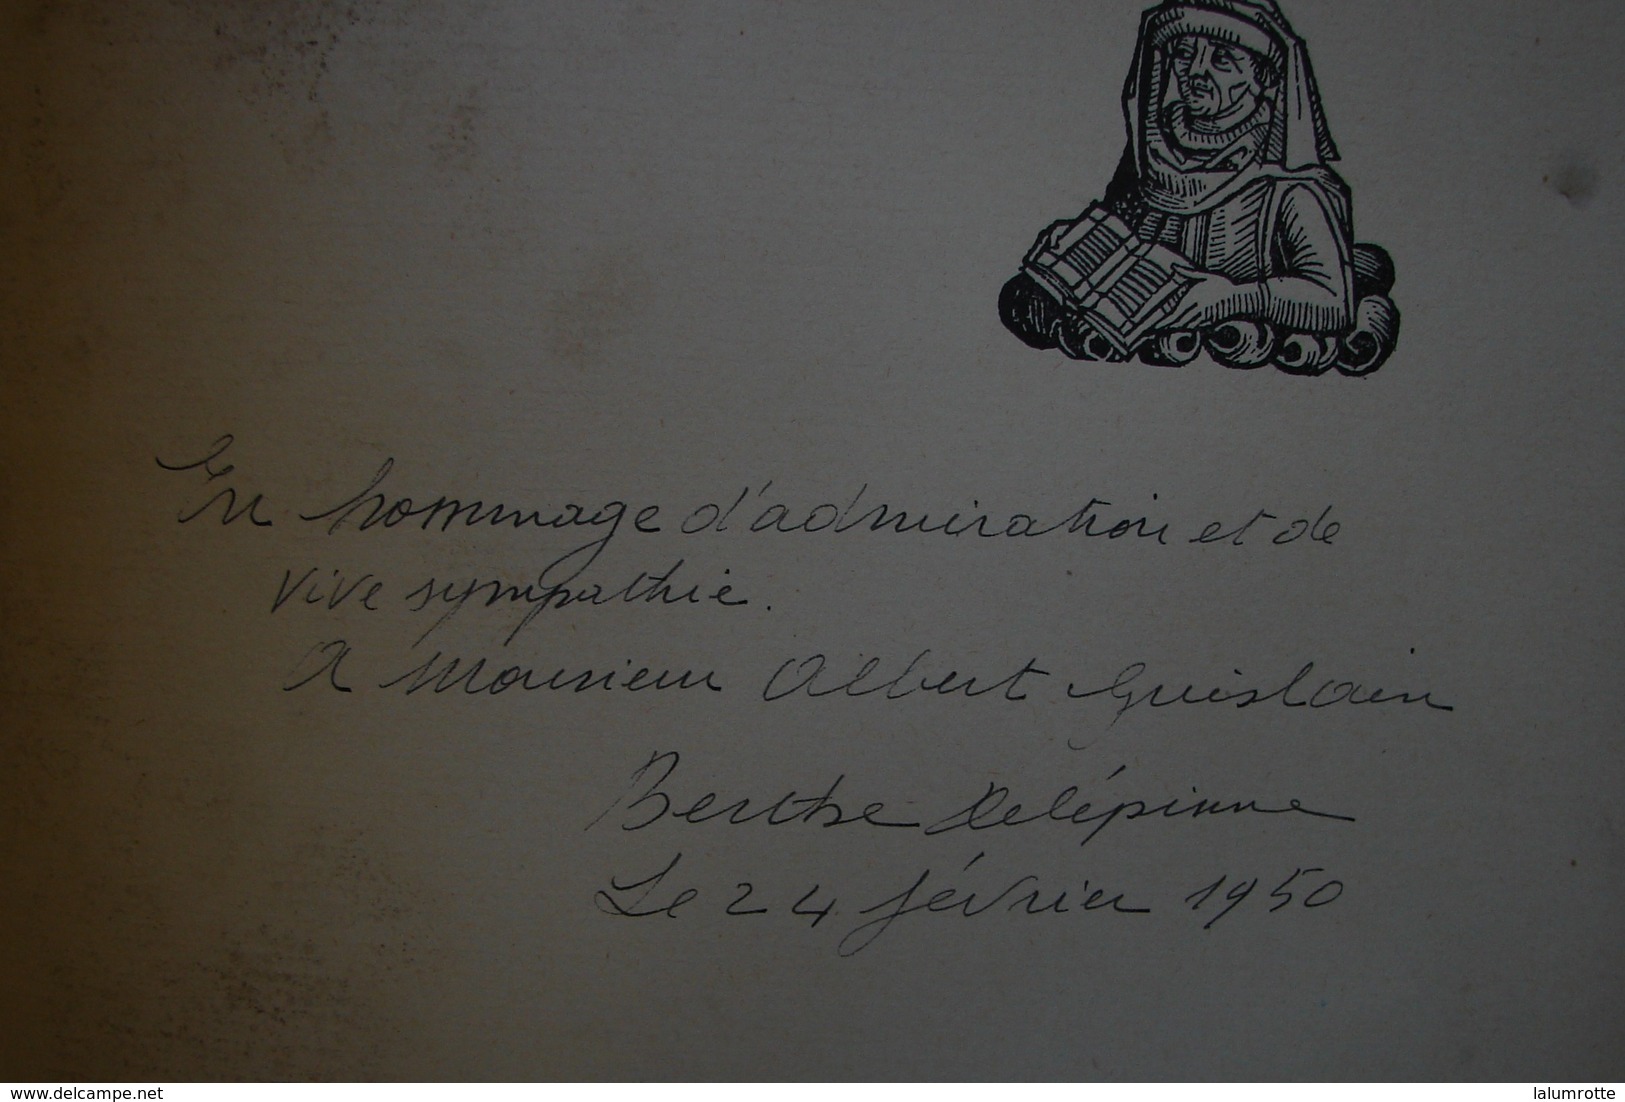 En hommage d'admiration et de
vive sympathie.
A Monsieur Albert Guislain
Berthe Delépinne
Le 24 février 1950
www.delcampe.net
lalumrotte